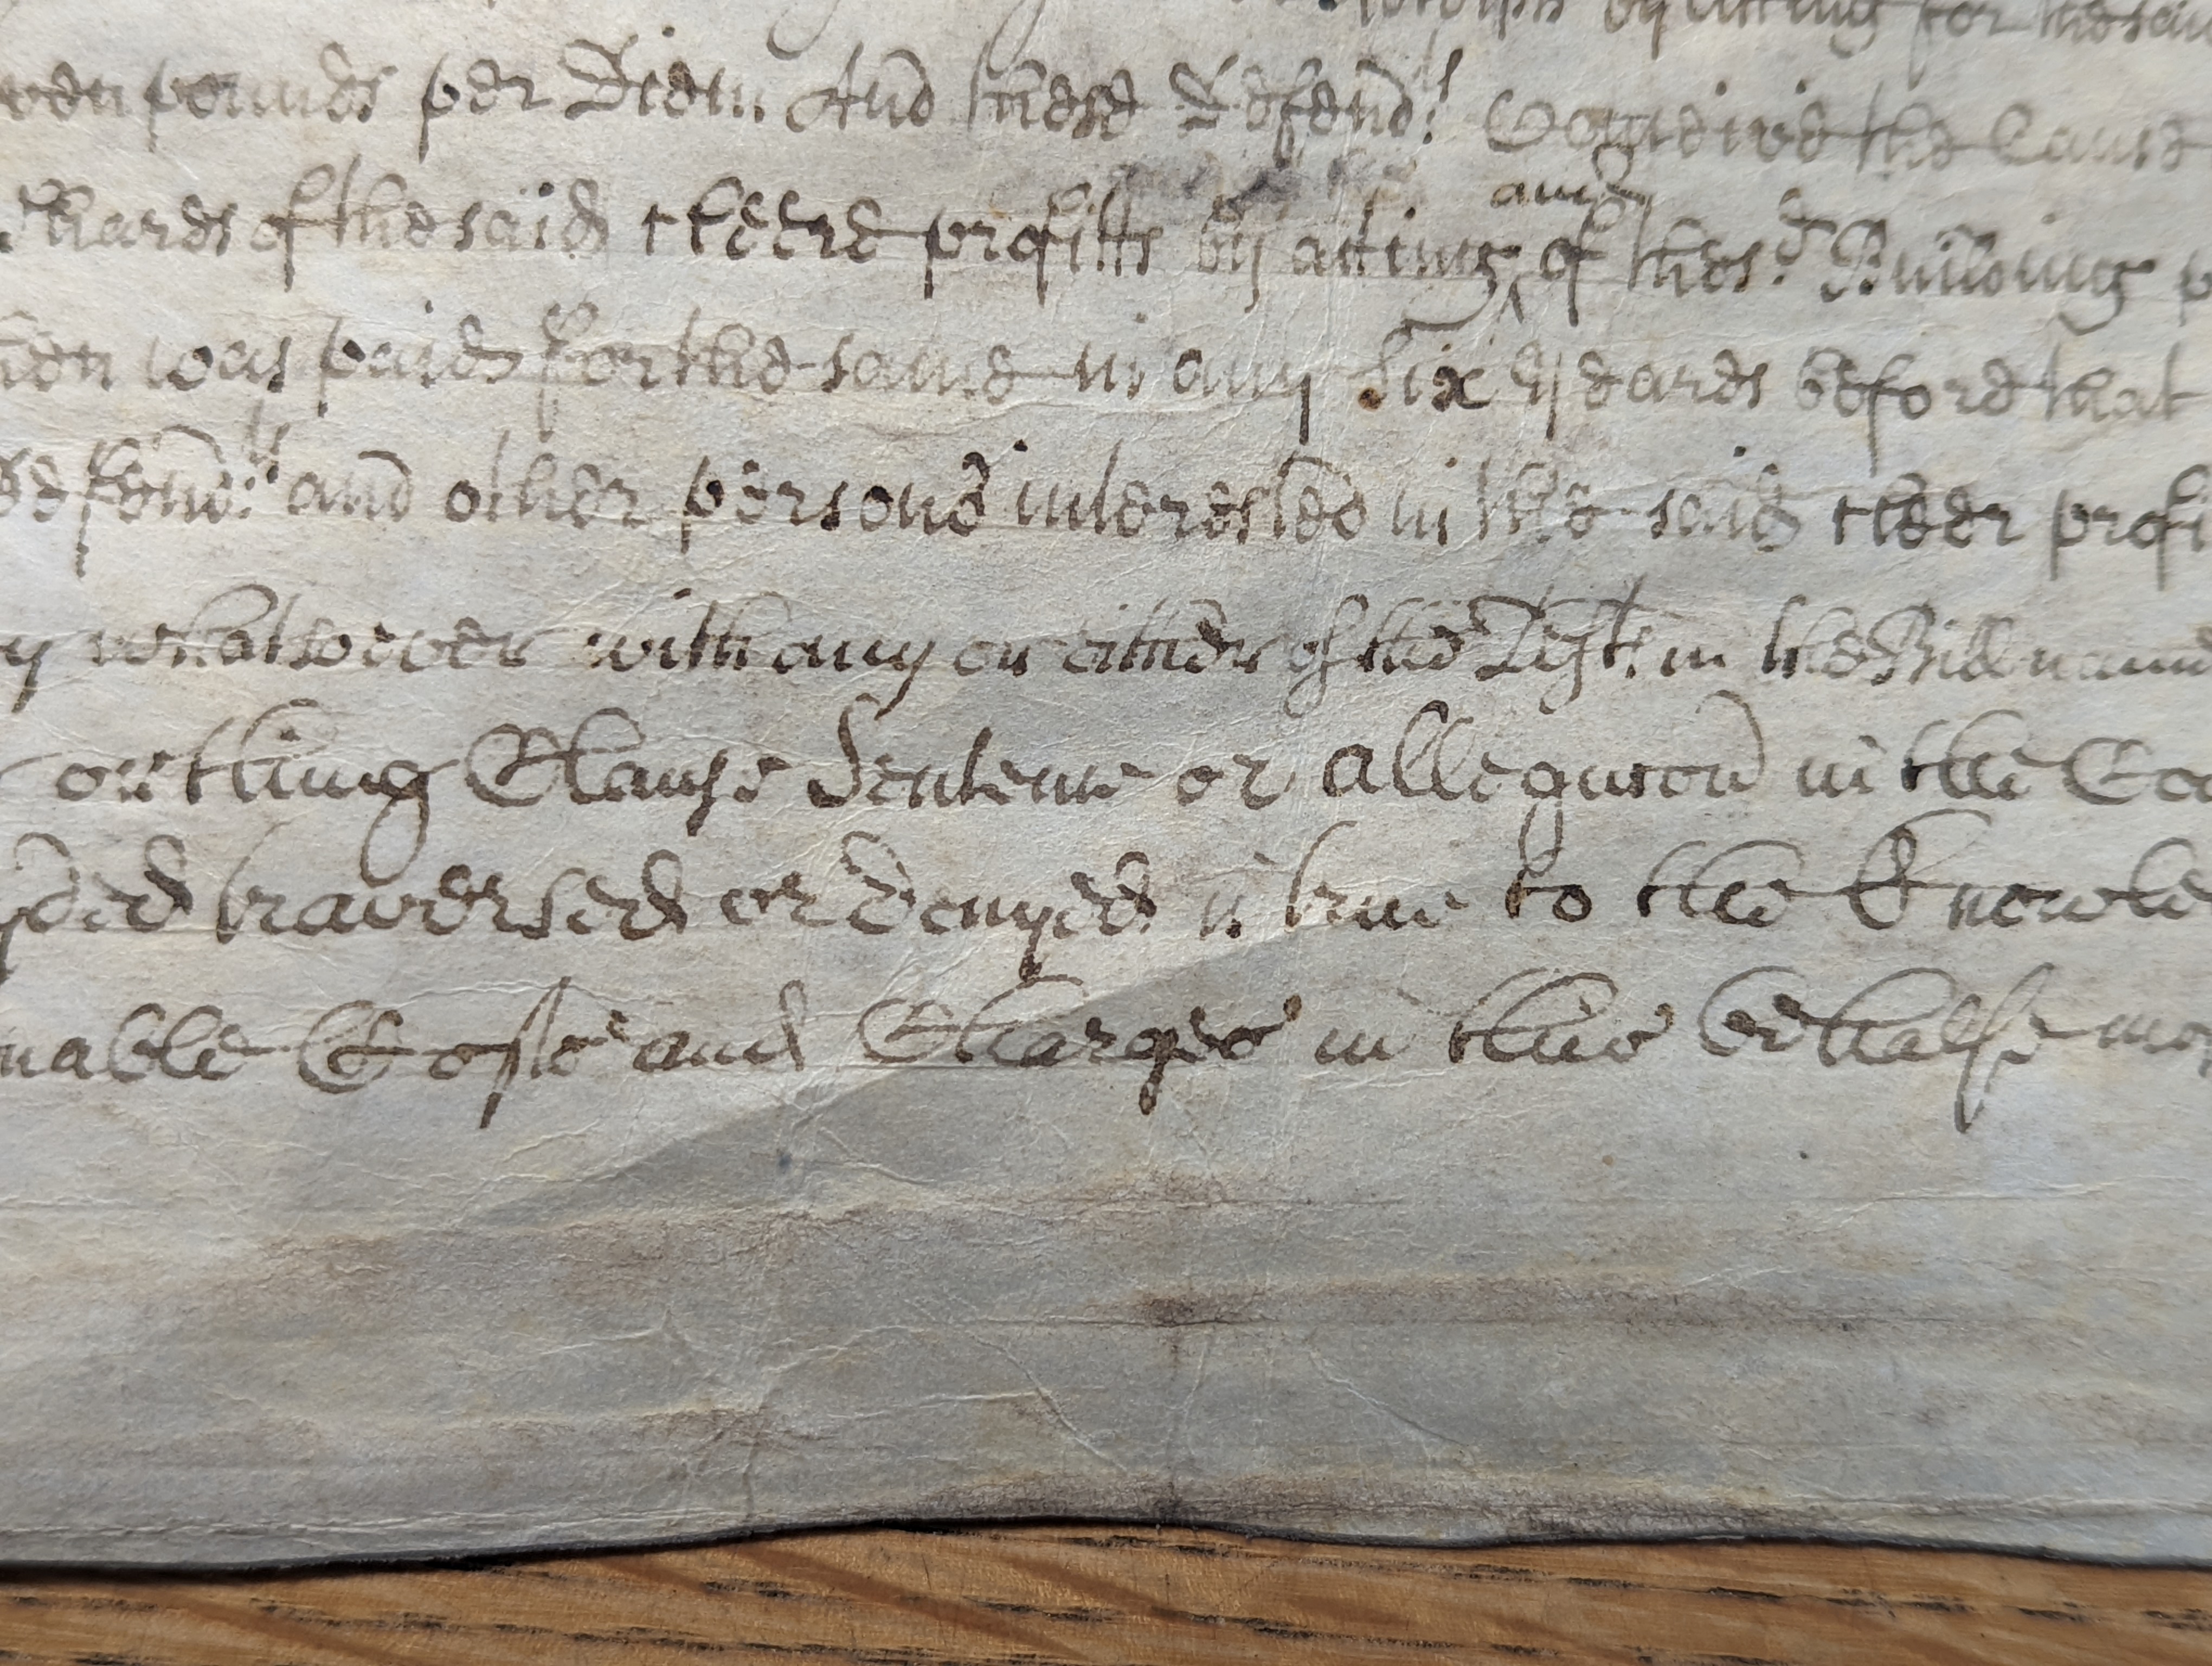 by acting for the said
pounds per Diem. And these Defend:ts Conceive the Cause
Shares of the said cleere profitts by acting of the s:d Building
and
was paid for the same in any Six yeares before that
defend:ts and other persons interested in the said cleer profi
y whatsoever with any or either of the Test: in the Bill name
or thing Clause Sentence or allegacon in the
ded traversed or denyed is true to the Knowle
nable Costs and Charges in this behalfe mos